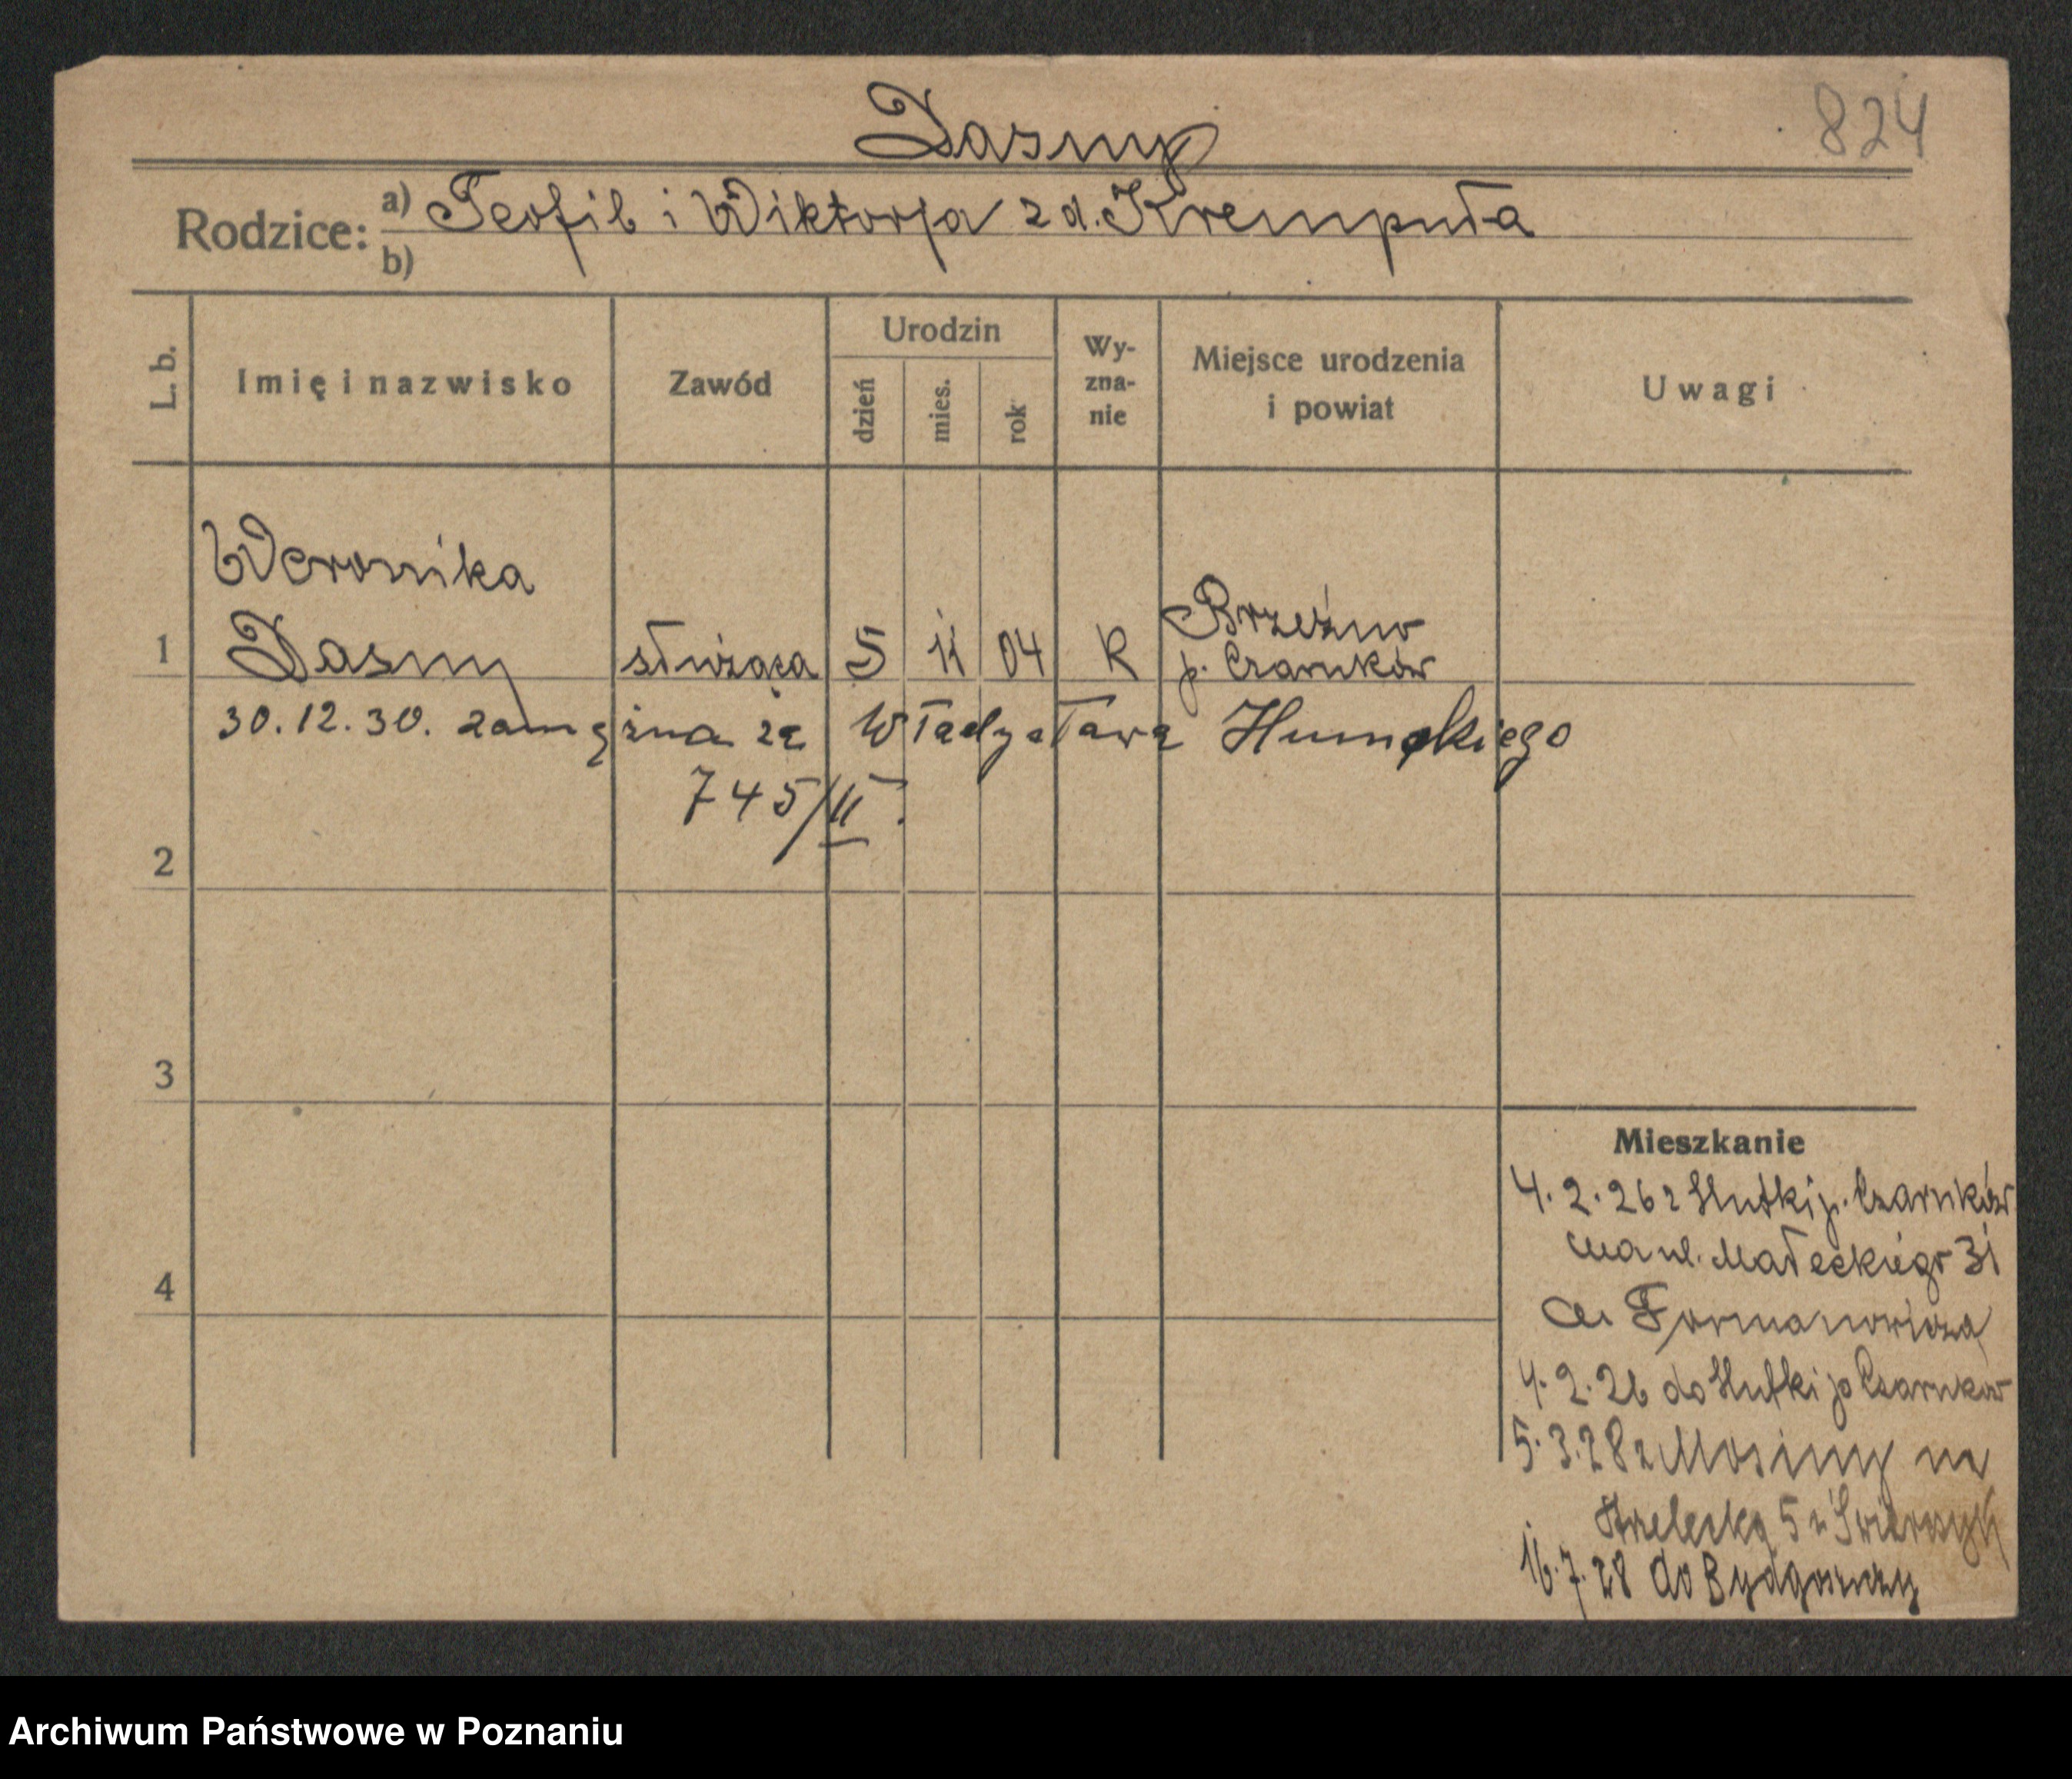 Dasmy
824
Rodzice: a) Teofil i Wiktorja z d. Krempuła
b)
L. b.
Imię i nazwisko
Zawód
Urodzin
dzień
mies.
rok
Wy-
zna-
nie
Miejsce urodzenia
i powiat
Uwagi
Weronika
1 Dasmy służąca 5 11 04 R Brzeźno
p. Czarnków
30.12.30. zamężna za Władysława
745/II.
2
3
4
Mieszkanie
4.2.26 z Hutki p. Czarnków
na ul. Małeckiego 31
u Formanowicza
4.2.26 do Hutki p Czarnków
5.3.28 z Mosiny na
Strzelecką 5
16.7.28 do Bydgoszczy
Archiwum Państwowe w Poznaniu